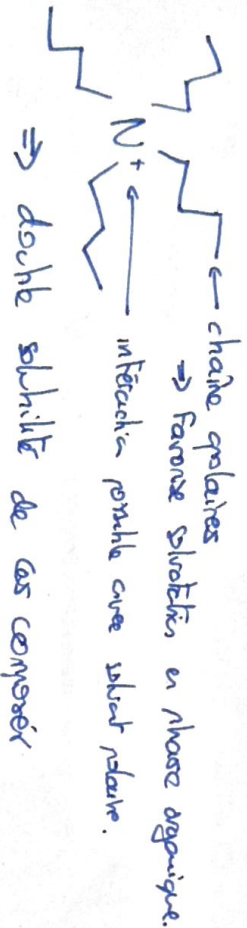 ← chaîne apolaires
⇒ favorise solvatation en phase organique.
N⁺
intéraction possible avec solvant polaire.
⇒ double solubilité de ces composés